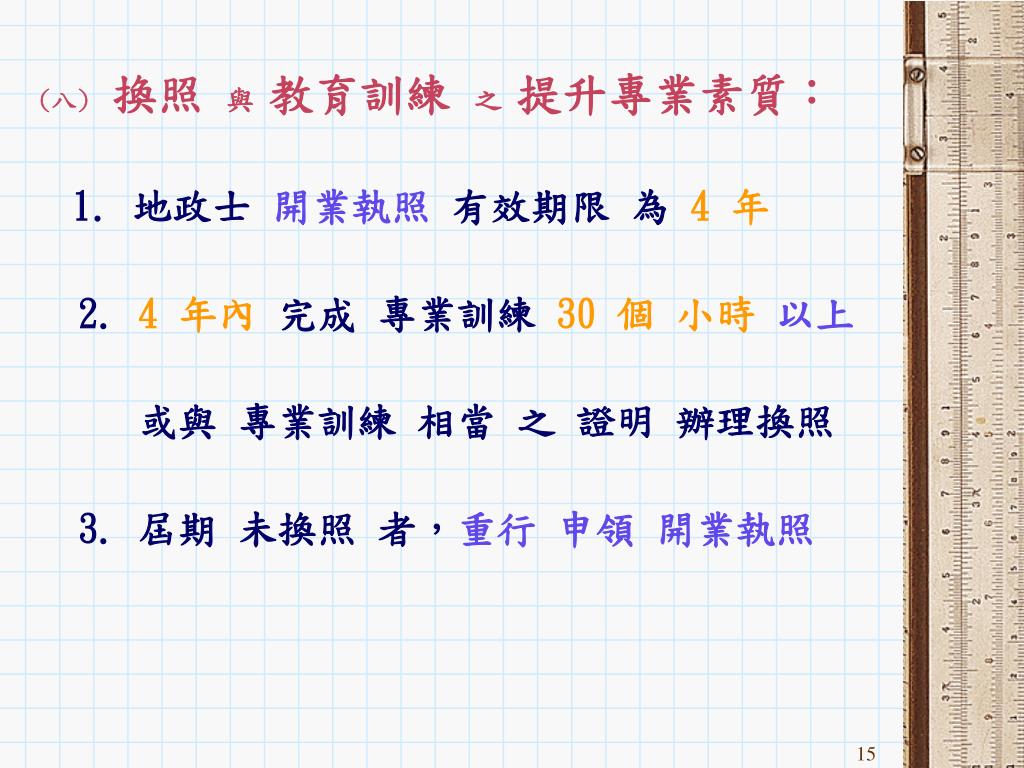 (八) 換照 與 教育訓練 之 提升專業素質：
1. 地政士 開業執照 有效期限 為 4 年
2. 4 年內 完成 專業訓練 30 個 小時 以上
或與 專業訓練 相當 之 證明 辦理換照
3. 屆期 未換照 者，重行 申領 開業執照
15